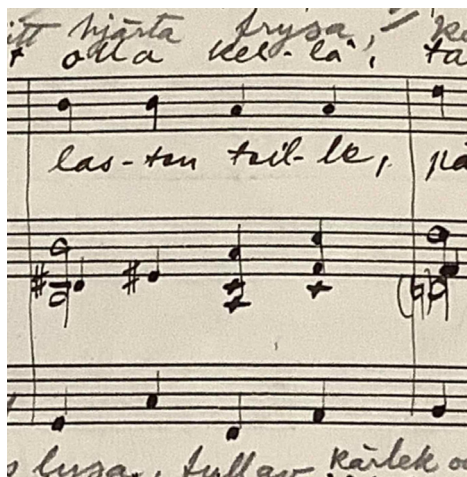 hjärta frysa,
olla kel-lä,
las-ten teil-le,
lysa, full av kärlek